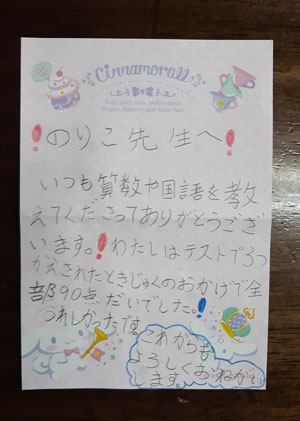 Cinnamoroll
！のりこ先生へ！
いつも算数や国語を教
えてくださってありがとうござ
います。！わたしはテストで3つ
かえされたときじゅくのおかげで全
部90点だいでした。！
うれしかったです。
これからも
よろしくおねがい
します。